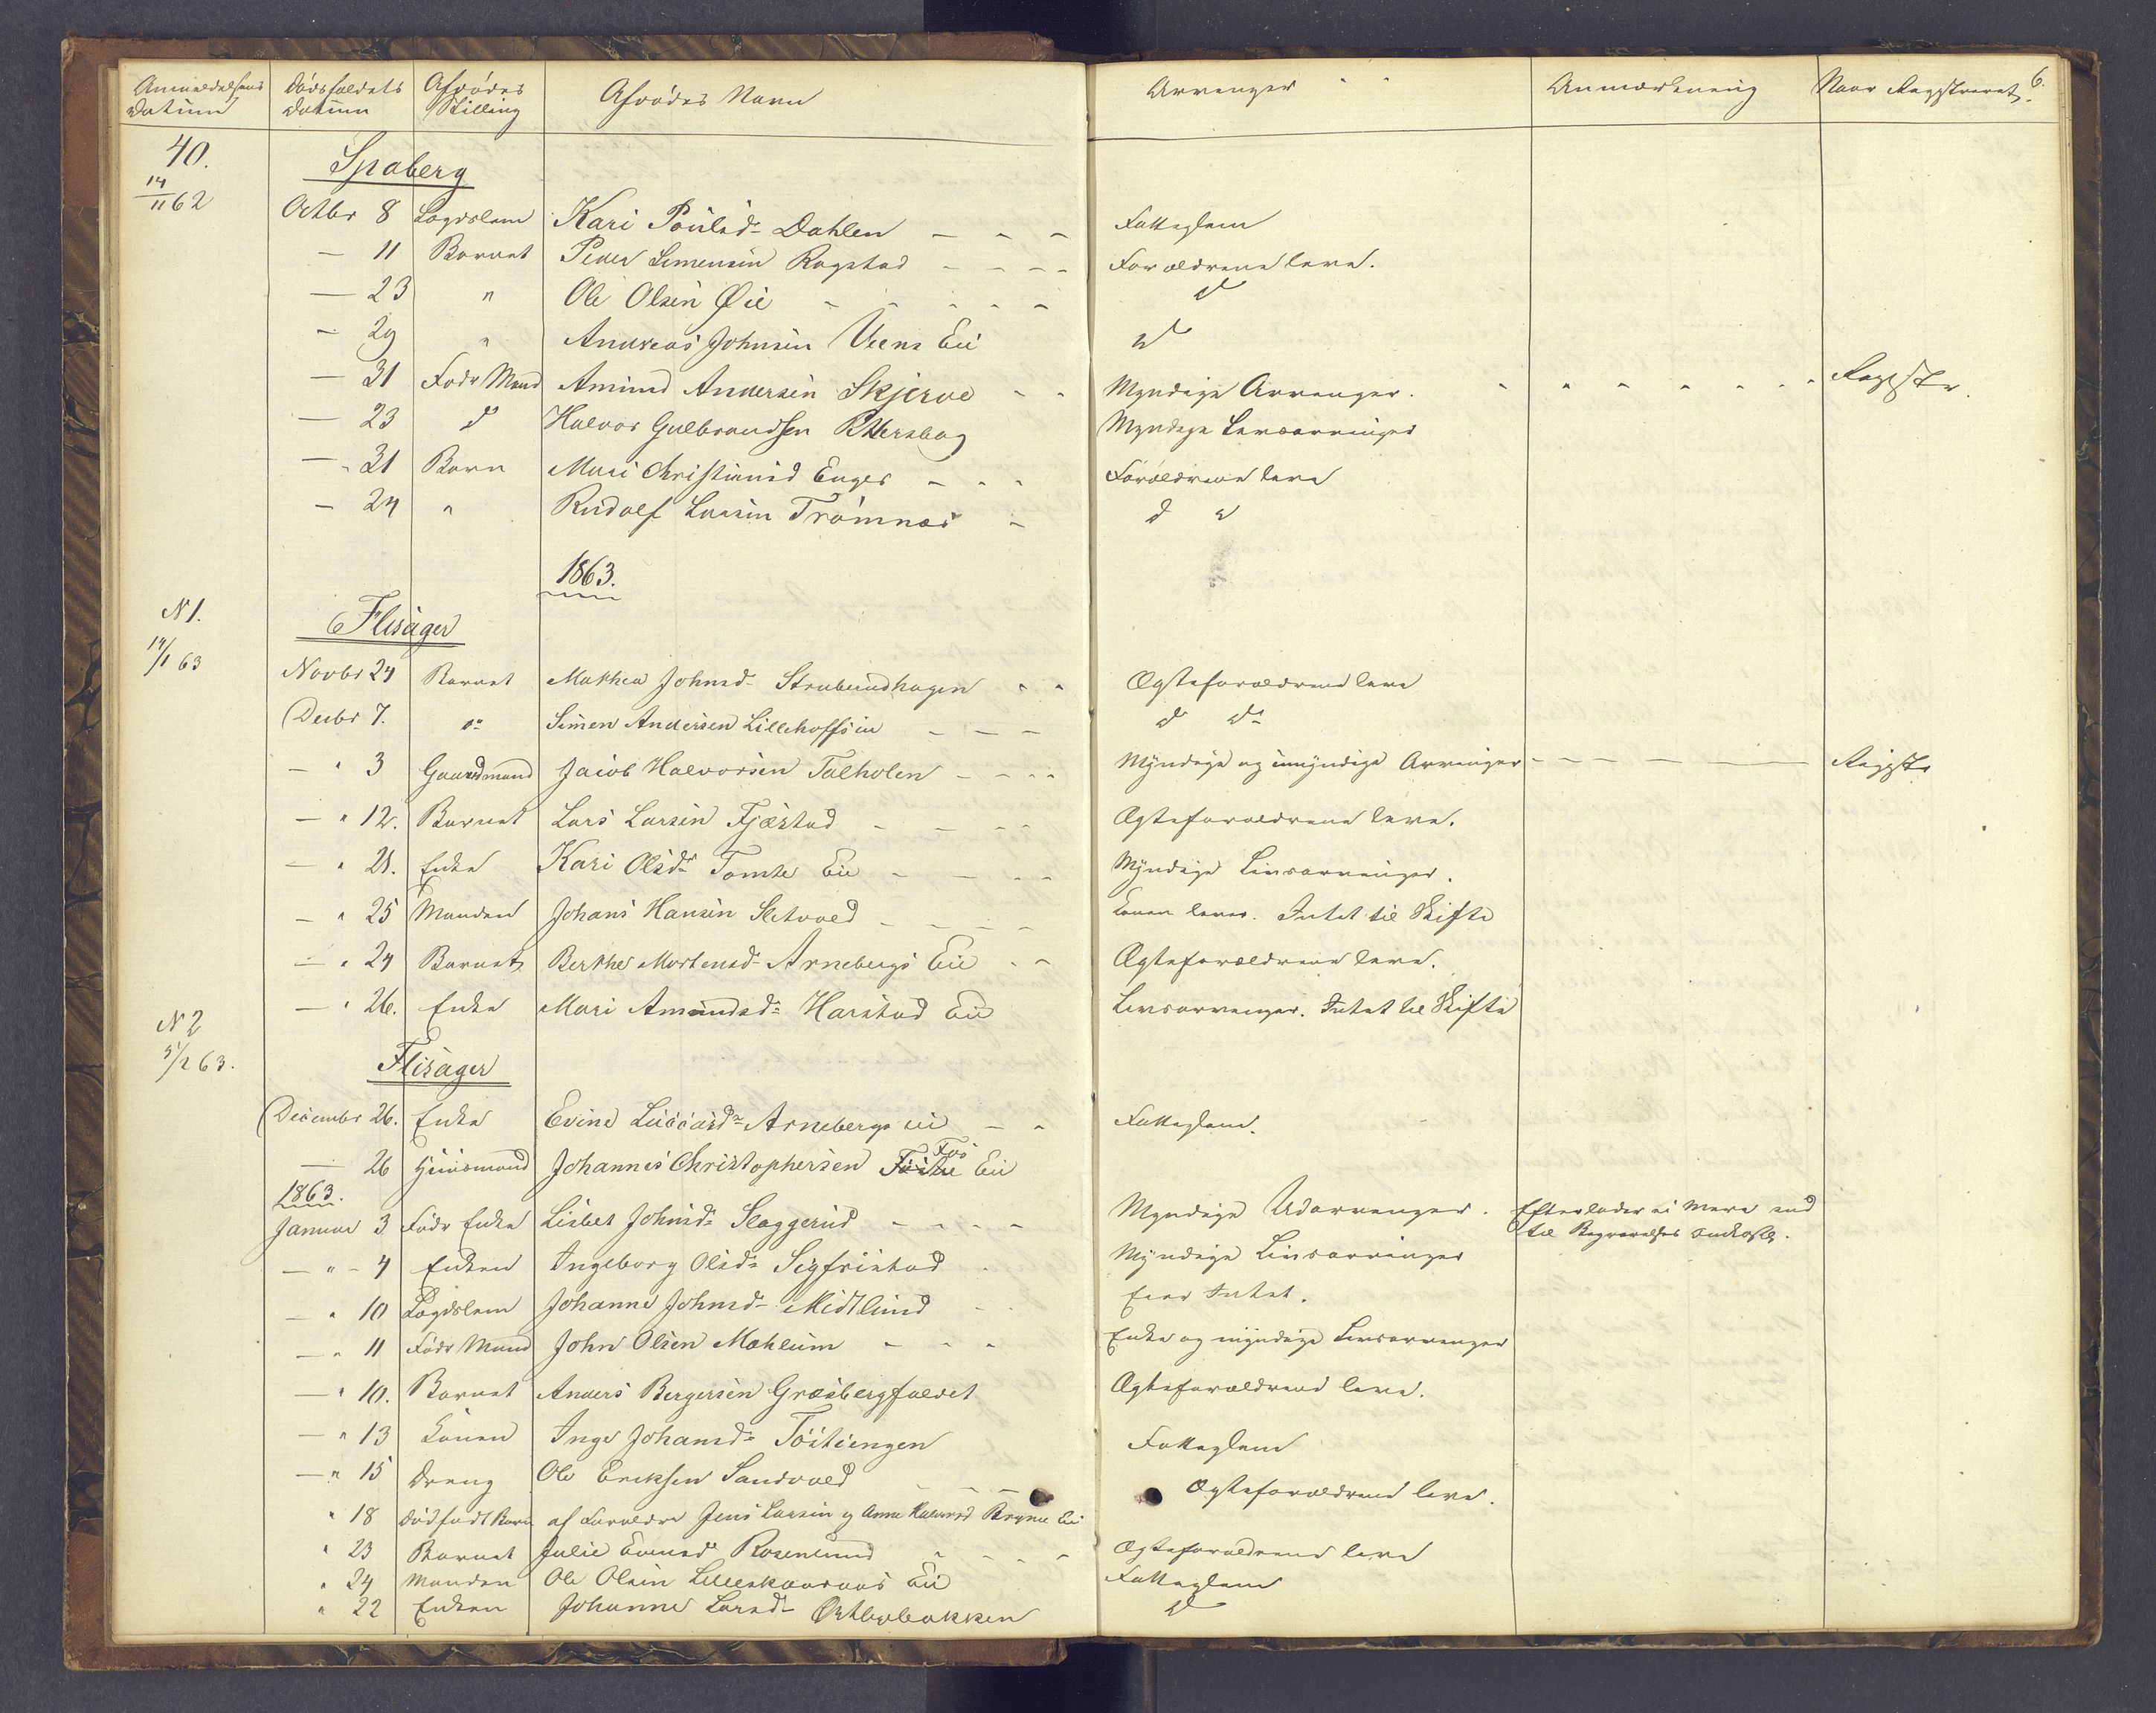 Anmeldelsens Datum | Dødsfaldets Datum | Afdødes Stilling | Afdødes Navn | Arvinger | Anmærkning | Naar Registreret 6.
40. Spaberg
14/11 62 Octbr 8 Lægdslem Kari Poulsd- Dahlen - - - Fatteglem
- 11 Barnet Peder Simensen Rogstad - - - - Forældrene leve.
- 23 " Ole Olsen Øie - - - - - d
- 29 " Andreas Johnsen Veens Eie d
- 31 Fødr Mand Amund Andersen Skjerve - - Myndige Arvinger. - - - - - - Registr.
- 23 d Halvor Gulbrandsen Myndige Livsarvinger
- 31 Barn Mari Christiansd Enger - - - Forældrene leve
- 24 " Rudolf Larsen Trømnæs - d d
1863.
N 1. Flisager
14/1 63 Novbr 24 Barnet Mathea Johnsd- Struberudhagen - - Ægteforældrene leve
Decbr 7. do Simen Andersen Lillehoffsen - - - d do
- " 3 Gaardmand Jacob Halvorsen Talholen - - - - Myndige og umyndige Arvinger - - - - - Registr
- " 12. Barnet Lars Larsen Fjæstad - - - - Ægteforældrene leve.
- " 21. Enke Kari Olsd- Tomte Eie - - - - Myndige Livsarvinger.
- " 25 Manden Johans Hansen Sletvold - - - - Konen lever. Intet til Skifte
- " 24 Barnet Berthe Mortensd- Arnebergs Eie - - Ægteforældrene leve.
- " 26. Enke Mari Amundsd- Harstad Eie Livsarvinger. Intet til Skifte
N 2 Flisager
5/2 63.
December 26. Enke Arnebergs eie - - Fatteglem.
- 26 Huusmand Johannes Christophersen Fos Eie
1863.
Januar 3 Fødr Enke Lisbet Johnsd- Slaggerud - - - - Myndige Udarvinger. Efterlader ei mere end
til Begravelses omkostn.
- " - 4 Enken Ingeborg Olsd- Sigfristad - Myndige Livsarvinger
- " 10 Lægdslem Johanne Johnsd- Midtlund - - Eier Intet.
- " 11 Fødr Mand John Olsen Mahlum - - - Enke og myndige Livsarvinger
- " 10. Barnet Anders Bergersen Græsbergfaldet Ægteforældrene leve.
- " 13 Konen Inge Johansd- Töitiengen Fatteglem
- " 15 Dreng Ole Eriksen Sandvold - - - Ægteforældrene leve.
" 18 dødfødt Barn af Forældre Jens Larsen og Anna Halvorsd Brynne Eie
" 23 Barnet Julie Evensd Rosenlund - - - - Ægteforældrene leve
" 24 Manden Ole Olsen Eie Fatteglem
" 22 Enken Johanne Larsd- Østbybakken d